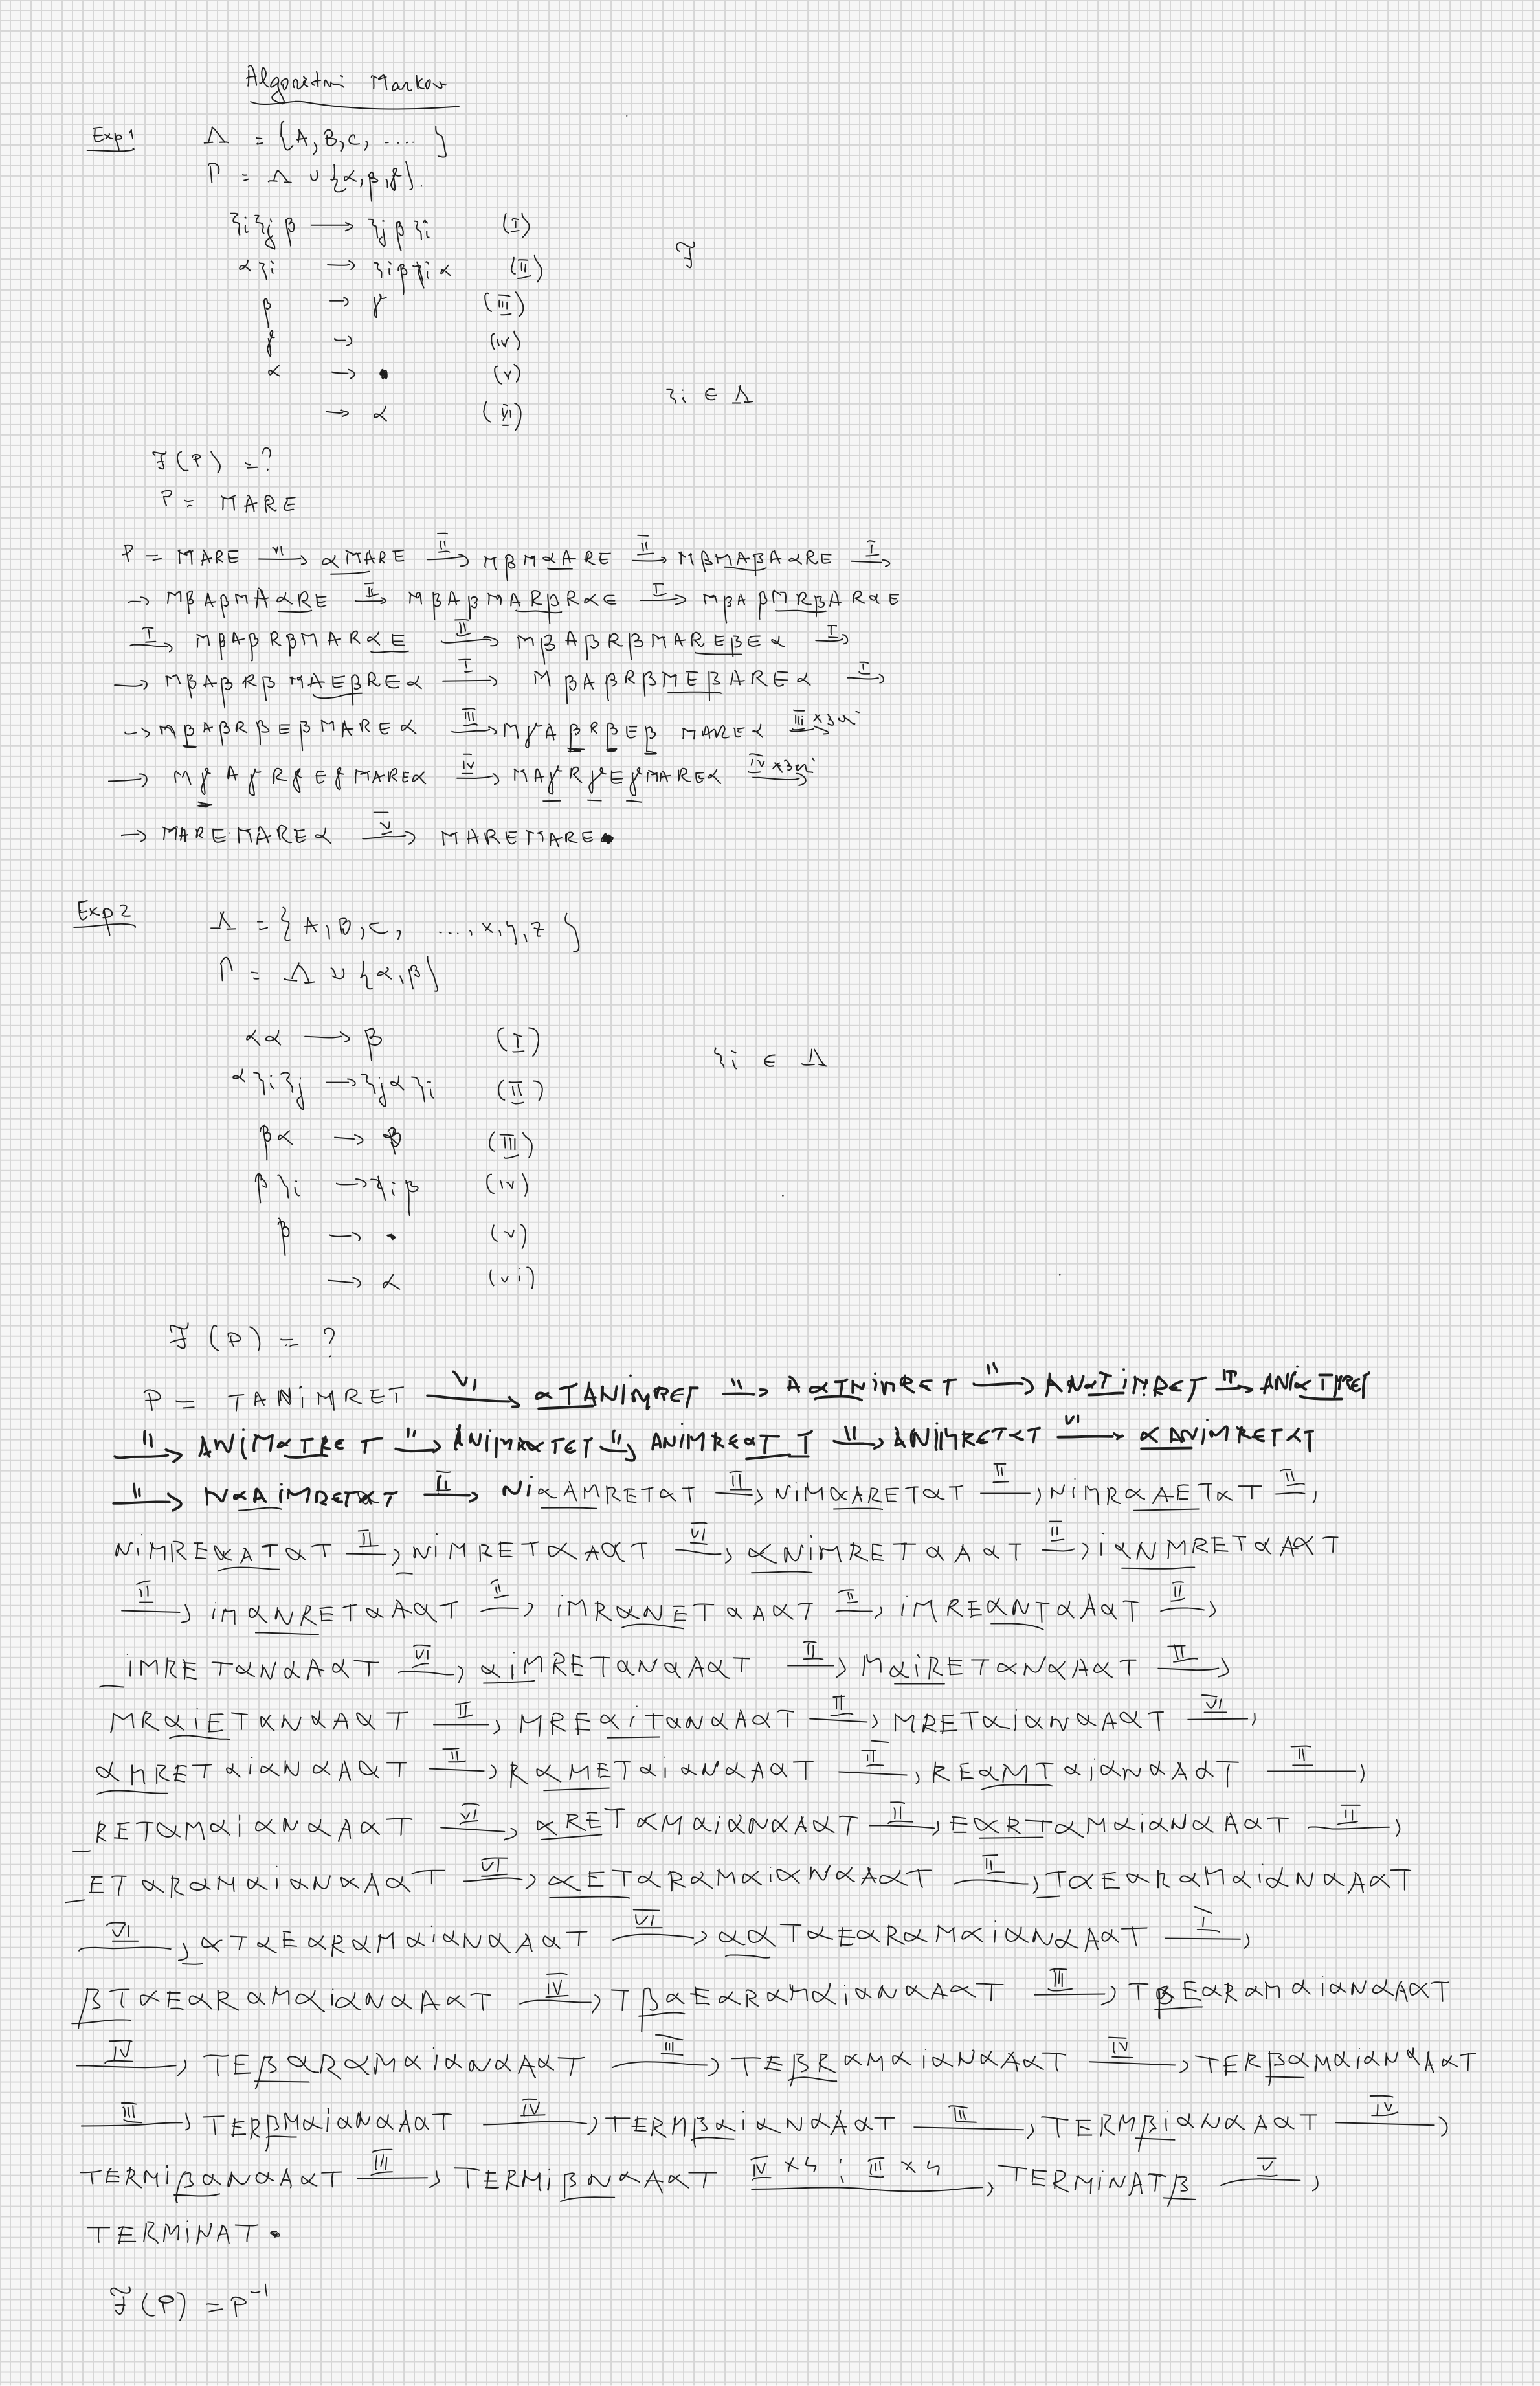 Algoritmi Markov
Exp1 Λ = {A, B, C, .... }
Γ = Λ ∪ {α, β, γ}.
ξi ξj β → ξj β ξi (I)
F
α ξi → ξi β ξi α (II)
β → γ (III)
γ → (IV)
α → • (V)
ξi ∈ Λ
→ α (VI)
F(P) = ?
P = MARE
P = MARE —VI→ αMARE —II→ MβMαARE —II→ MβMAβAαRE —I→
→ MβAβMAαRE —II→ MβAβMARβRαE —I→ MβAβMRβARαE
—I→ MβAβRβMARαE —II→ MβAβRβMAREβEα —I→
→ MβAβRβMAEβREα —I→ MβAβRβMEβAREα —I→
→ MβAβRβEβMAREα —III→ MγAβRβEβ MAREα —III ×3ori→
→ MγAγRγEγMAREα —IV→ MAγRγEγMAREα —IV ×3ori→
→ MAREMAREα —V→ MAREMARE•
Exp2 Λ = {A, B, C, ...., x, y, z }
Γ = Λ ∪ {α, β}
αα → β (I)
ξi ∈ Λ
α ξi ξj → ξj α ξi (II)
βα → β (III)
β ξi → ξi β (IV)
β → • (V)
→ α (VI)
F(P) = ?
P = TANiMRET —VI→ αTANiMRET —II→ AαTNiMRET —II→ ANαTiMRET —II→ ANiαTMRET
—II→ ANiMαTRET —II→ ANiMRαTET —II→ ANIMREαTT —II→ ANIMRETαT —VI→ αANiMRETαT
—II→ NαAiMRETαT —II→ NiαAMRETαT —II→ NiMαARETαT —II→ NiMRαAETαT —II→
NiMREαATαT —II→ NiMRETαAαT —VI→ αNiMRETαAαT —II→ iαNMRETαAαT
—II→ iMαNRETαAαT —II→ iMRαNETαAαT —II→ iMREαNTαAαT —II→
iMRETαNαAαT —VI→ αiMRETαNαAαT —II→ MαiRETαNαAαT —II→
MRαiETαNαAαT —II→ MREαiTαNαAαT —II→ MRETαiαNαAαT —VI→
αMRETαiαNαAαT —II→ RαMETαiαNαAαT —II→ REαMTαiαNαAαT —II→
RETαMαiαNαAαT —VI→ αRETαMαiαNαAαT —II→ EαRTαMαiαNαAαT —II→
ETαRαMαiαNαAαT —VI→ αETαRαMαiαNαAαT —II→ TαEαRαMαiαNαAαT
—VI→ αTαEαRαMαiαNαAαT —VI→ ααTαEαRαMαiαNαAαT —I→
βTαEαRαMαiαNαAαT —IV→ TβαEαRαMαiαNαAαT —III→ TβEαRαMαiαNαAαT
—IV→ TEβαRαMαiαNαAαT —III→ TEβRαMαiαNαAαT —IV→ TERβαMαiαNαAαT
—III→ TERβMαiαNαAαT —IV→ TERMβαiαNαAαT —III→ TERMβiαNαAαT —IV→
TERMiβαNαAαT —III→ TERMiβNαAαT —IV ×4 ; III ×4→ TERMiNATβ —V→
TERMiNAT•
F(P) = P⁻¹